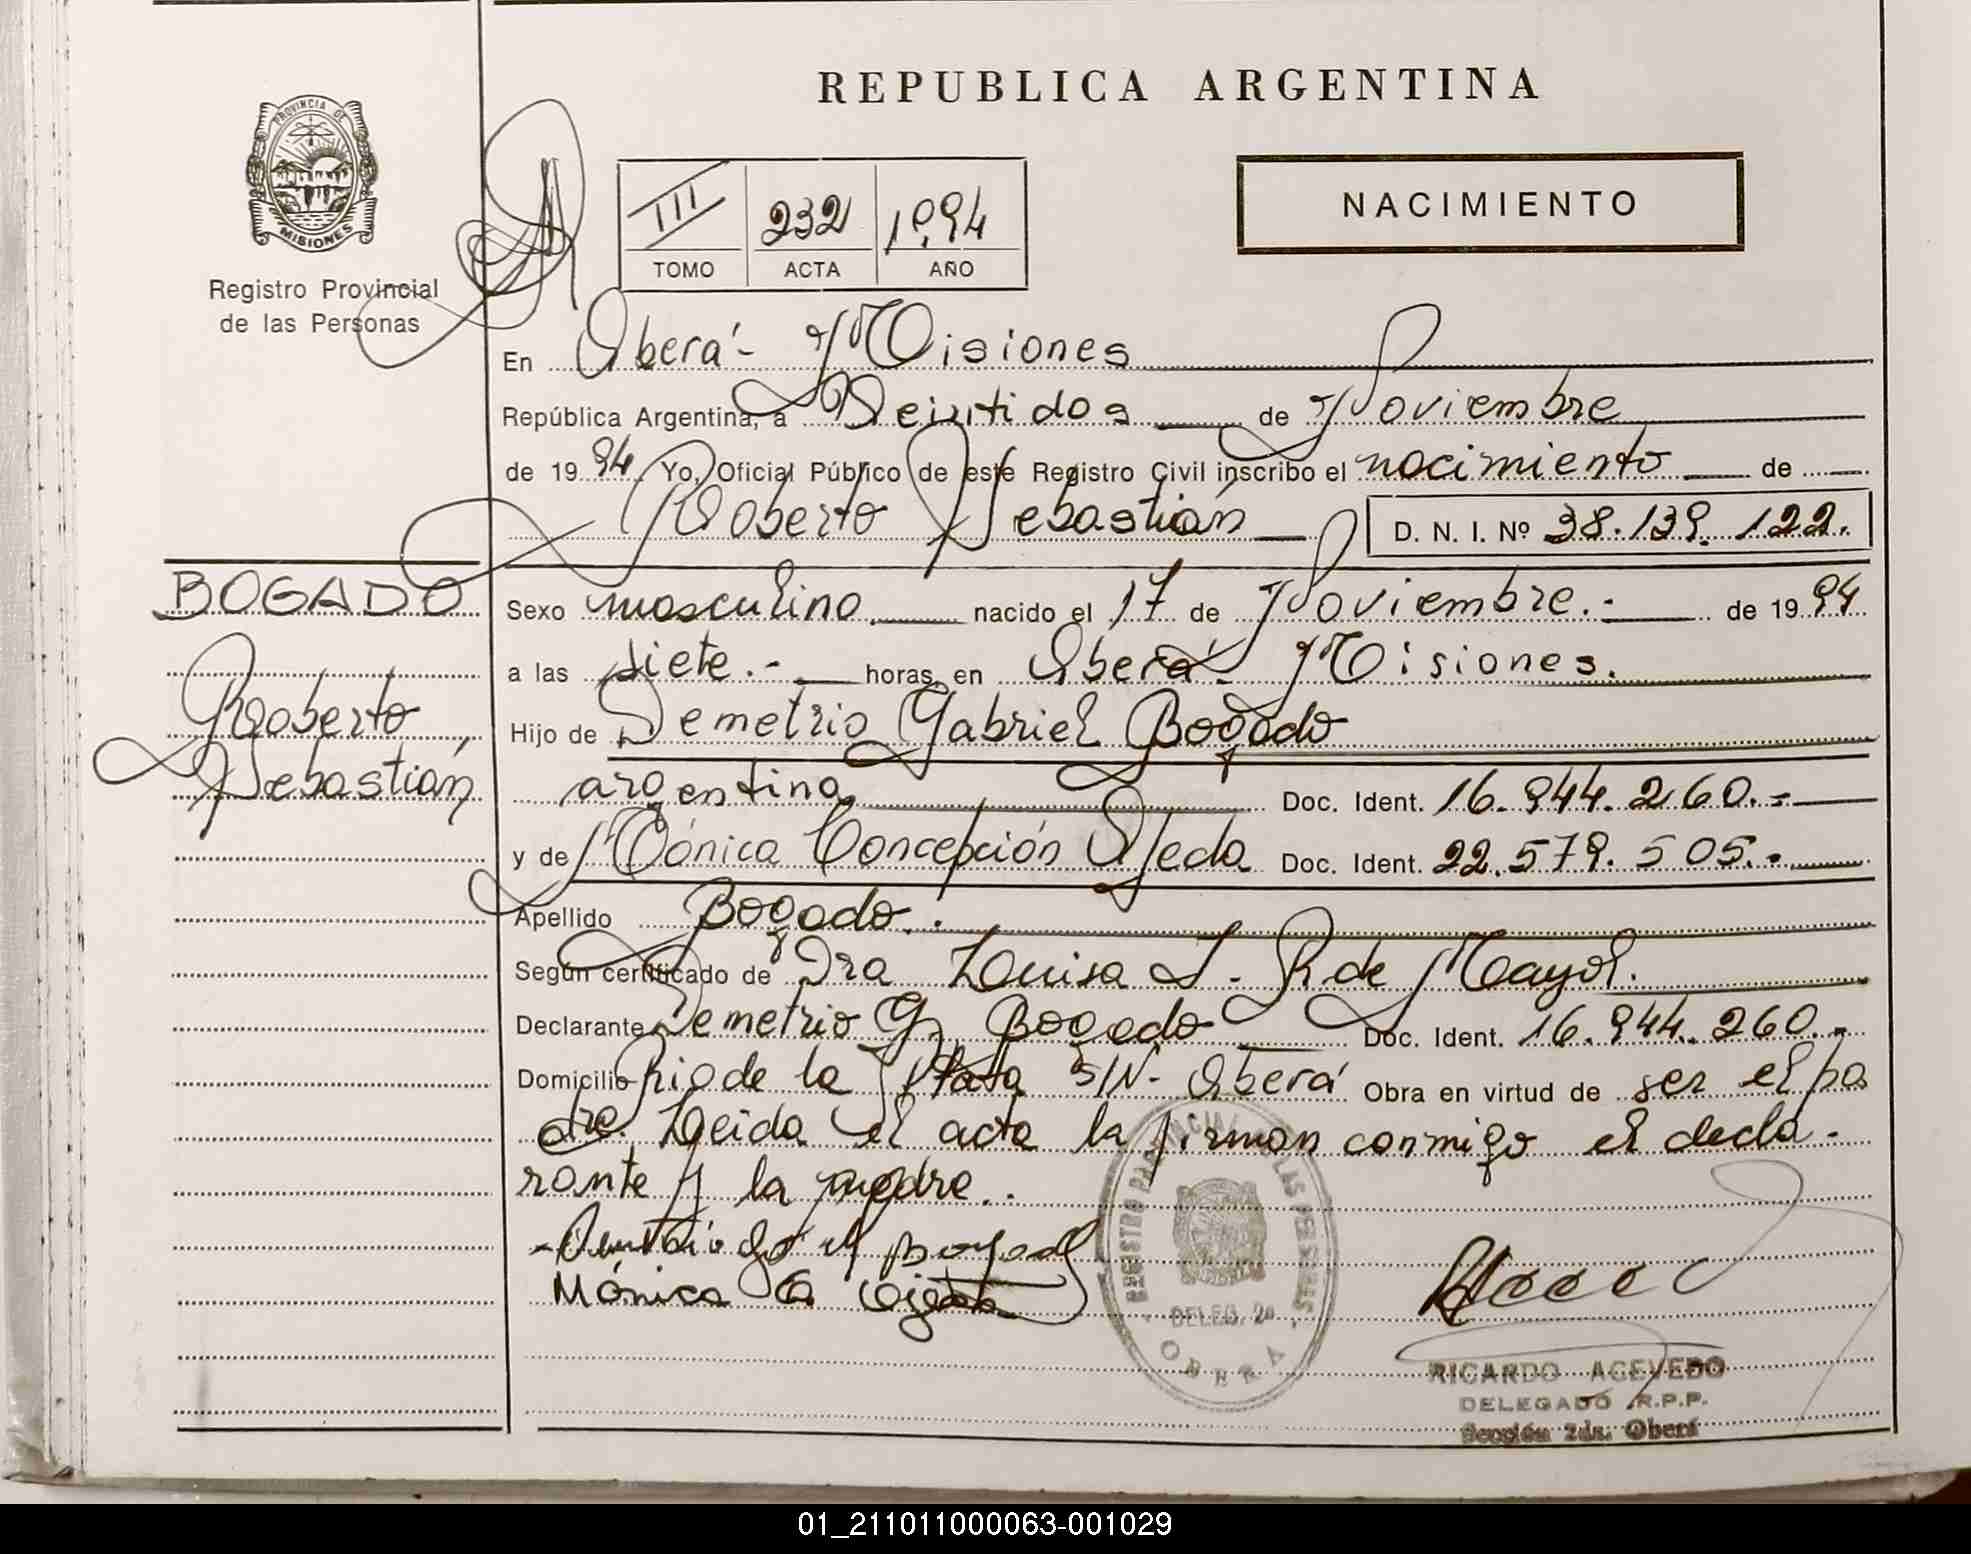 REPUBLICA ARGENTINA
PROVINCIA DE
MISIONES
Registro Provincial
de las Personas
III 232 1994
TOMO ACTA AÑO
NACIMIENTO
En Oberá - Misiones
República Argentina, a Veintidos de Noviembre
de 1994 Yo, Oficial Público de este Registro Civil inscribo el nacimiento de
Roberto Sebastián D. N. I. Nº 38.139.122.
BOGADO
Roberto
Sebastián
Sexo masculino nacido el 17 de Noviembre.- de 1994
a las siete.- horas, en Oberá - Misiones.
Hijo de Demetrio Gabriel Bogado
argentino Doc. Ident. 16.944.260.-
y de Mónica Concepción Ojeda Doc. Ident. 22.579.505.-
Apellido Bogado.
Según certificado de Dra Luisa I. R de Mayol.
Declarante Demetrio G. Bogado Doc. Ident. 16.944.260.-
Domicilio Rio de la Plata S/N - Oberá Obra en virtud de ser el pa
dre. Leida el acta la firman conmigo el decla-
rante y la madre.
Mónica C Ojeda
REGISTRO PROVINCIAL DE LAS PERSONAS
DELEG. 2a
OBERA
RICARDO ACEVEDO
DELEGADO R.P.P.
Sección 2da. Oberá
01_211011000063-001029